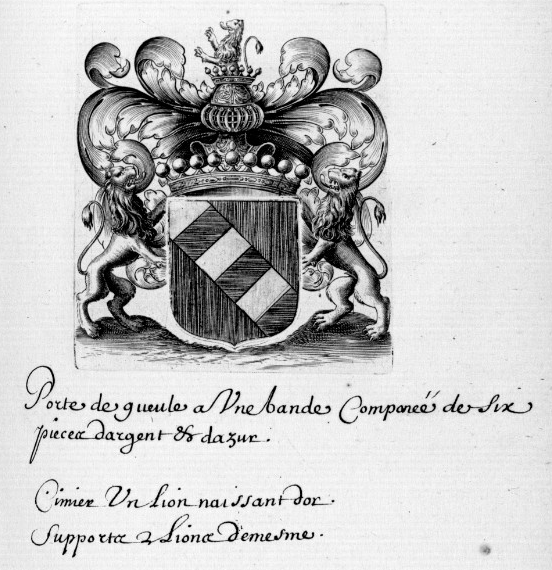 Porte de gueule a Vne bande Componeé de six
pieces dargent & dazur.
Cimier Vn Lion naissant dor.
Supports 2 Lions demesme.